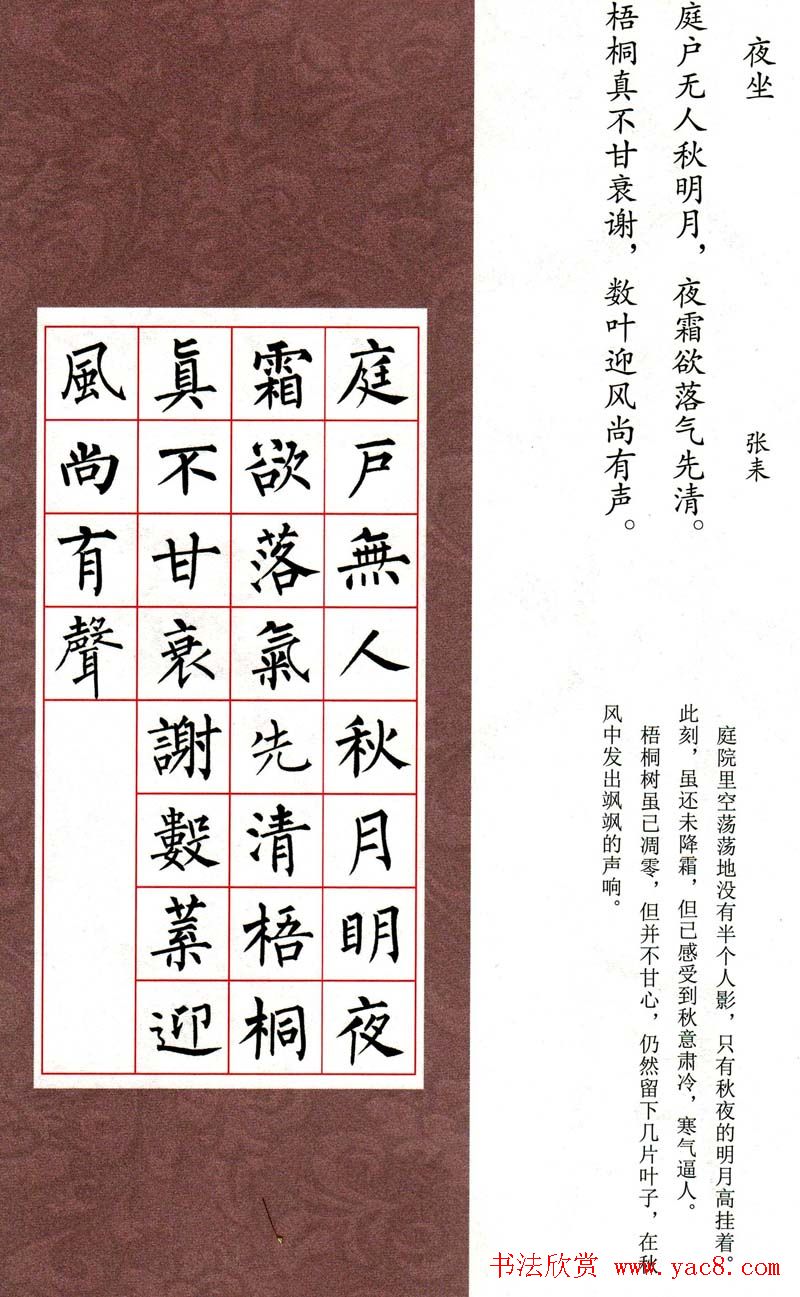 夜坐
张耒
庭户无人秋明月，夜霜欲落气先清。
梧桐真不甘衰谢，数叶迎风尚有声。
庭院里空荡荡地没有半个人影，只有秋夜的明月高挂着。
此刻，虽还未降霜，但已感受到秋意肃冷，寒气逼人。
梧桐树虽已凋零，但并不甘心，仍然留下几片叶子，在秋
风中发出飒飒的声响。
庭戶無人秋月明夜
霜欲落氣先清梧桐
眞不甘衰謝數葉迎
風尚有聲
书法欣赏 www.yac8.com